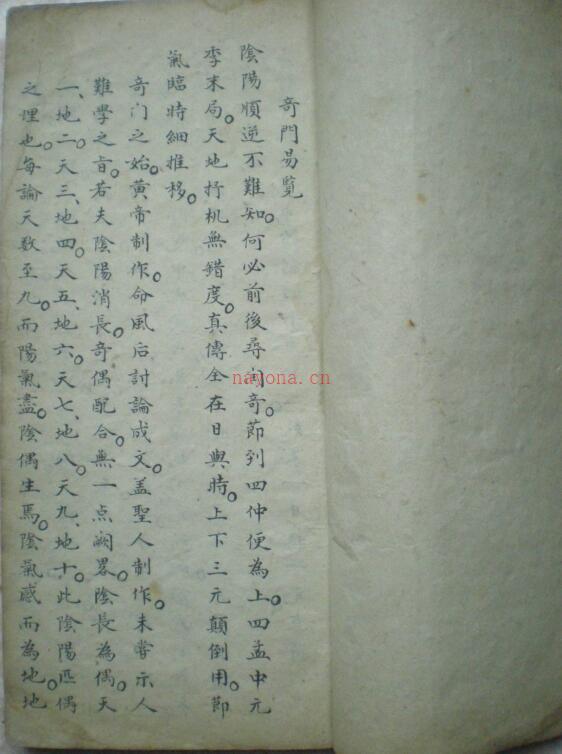 奇門易覽
陰陽順逆不難知。何必前後尋閏奇。節到四仲便為上。四孟中元
季末局。天地抒机無錯度。真傳全在日與時。上下三元顛倒用。節
氣臨時細推移。
奇门之始。黃帝制作。命風后討論成文。盖聖人制作。未嘗示人
難學之旨。若夫陰陽消長。奇偶配合。無一点闕畧。陰長為偶。天
一、地二。天三、地四。天五、地六。天七、地八。天九、地十。此陰陽匹偶
之理也。每論天数至九。而陽氣盡。陰偶生焉。陰氣感而為地。地
nayona.cn